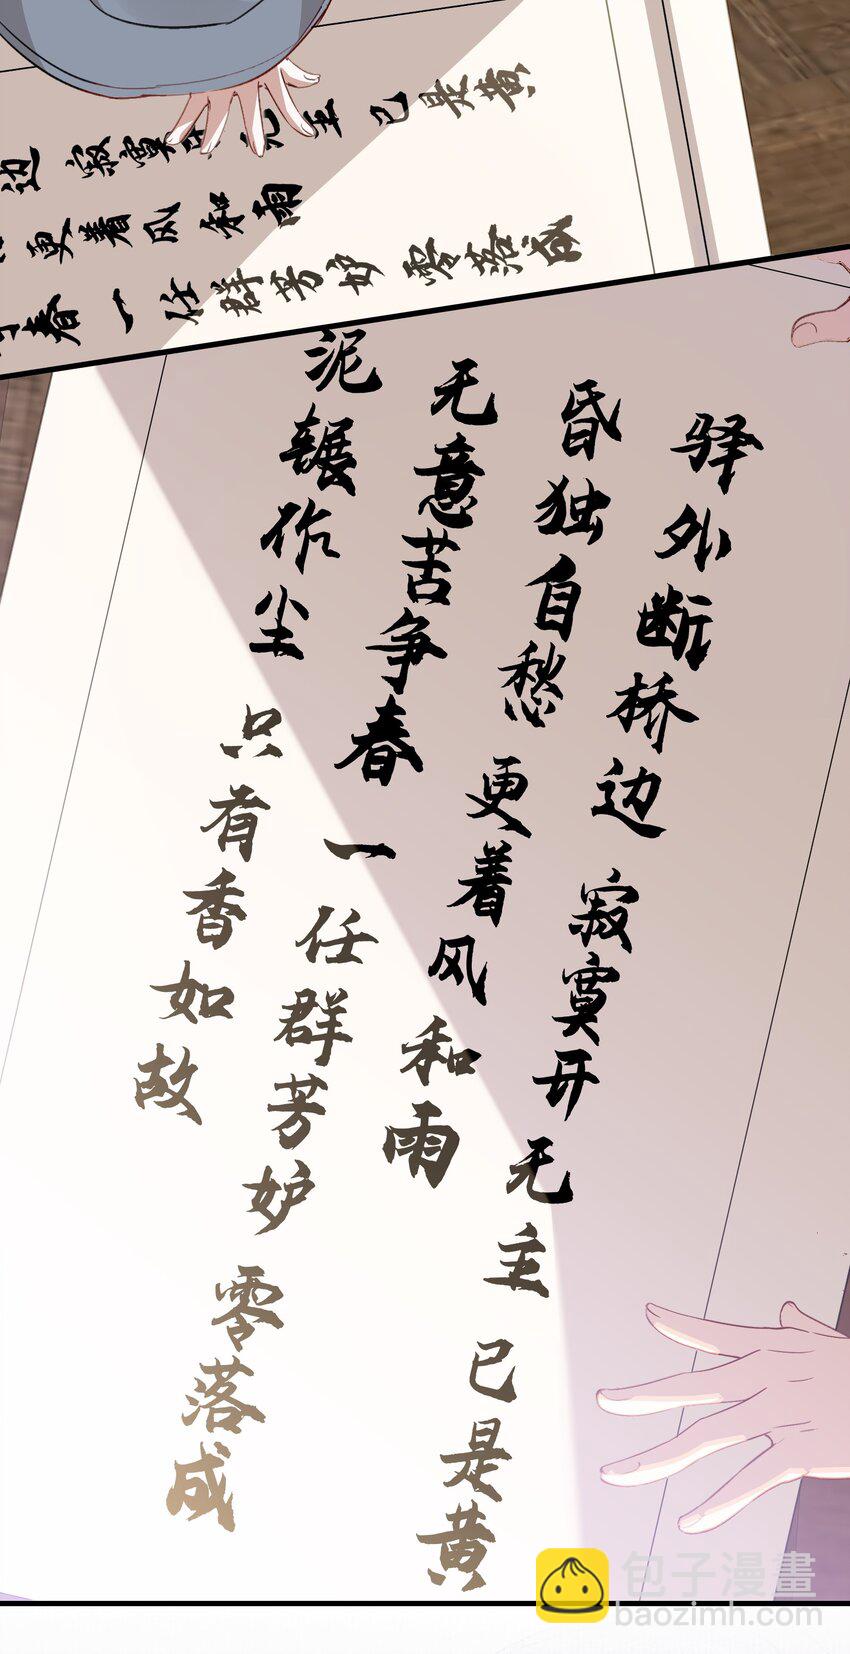 边 寂寞 无主 已是黄
更着风和雨
春 一任群芳妒 零落成
驿外断桥边 寂寞开无主 已是黄
昏独自愁 更着风和雨
无意苦争春 一任群芳妒 零落成
泥辗作尘 只有香如故
包子漫畫
baozimh.com